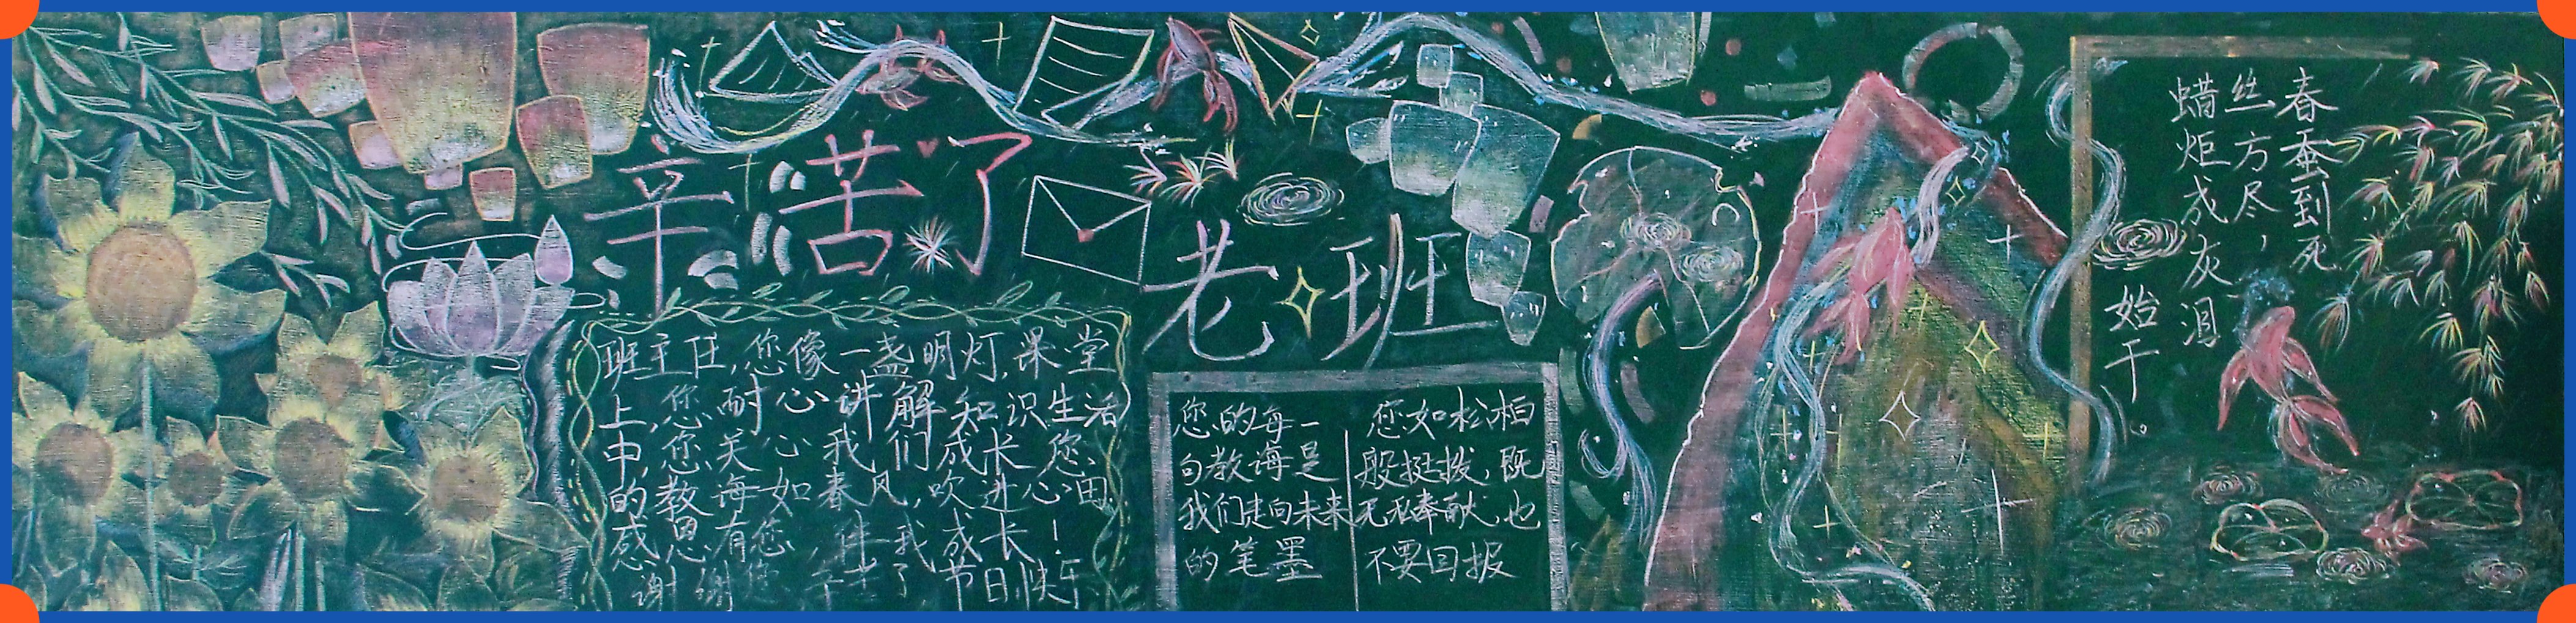 辛苦了
老班
班主任,您像一盏明灯,课堂
上,您耐心讲解知识生活
中,您关心我们成长您
的教诲如春风,吹进心田
感恩有您,伴我成长!
谢谢您,辛苦了节日快乐
您的每一
句教诲是
我们走向未来
的笔墨
您如松柏
般挺拨,既
无私奉献,也
不要回报
春蚕到死
丝方尽,
蜡炬成灰泪
始干